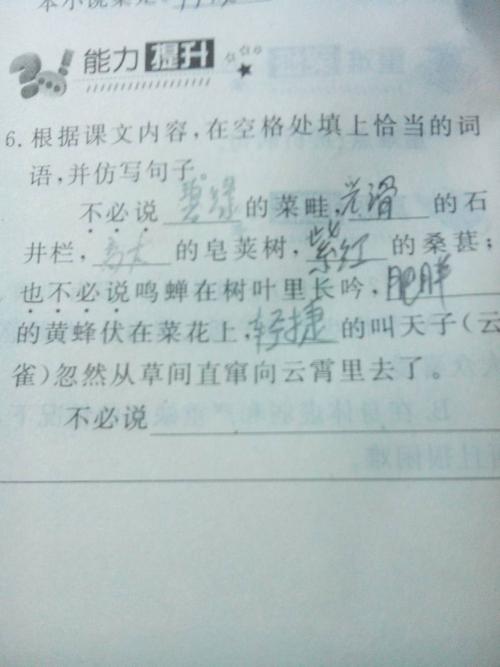 能力提升
6.根据课文内容,在空格处填上恰当的词
语,并仿写句子。
不必说 碧绿 的菜畦,光滑 的石
井栏, 高大 的皂荚树, 紫红 的桑葚;
也不必说鸣蝉在树叶里长吟, 肥胖
的黄蜂伏在菜花上, 轻捷 的叫天子(云
雀)忽然从草间直窜向云霄里去了。
不必说